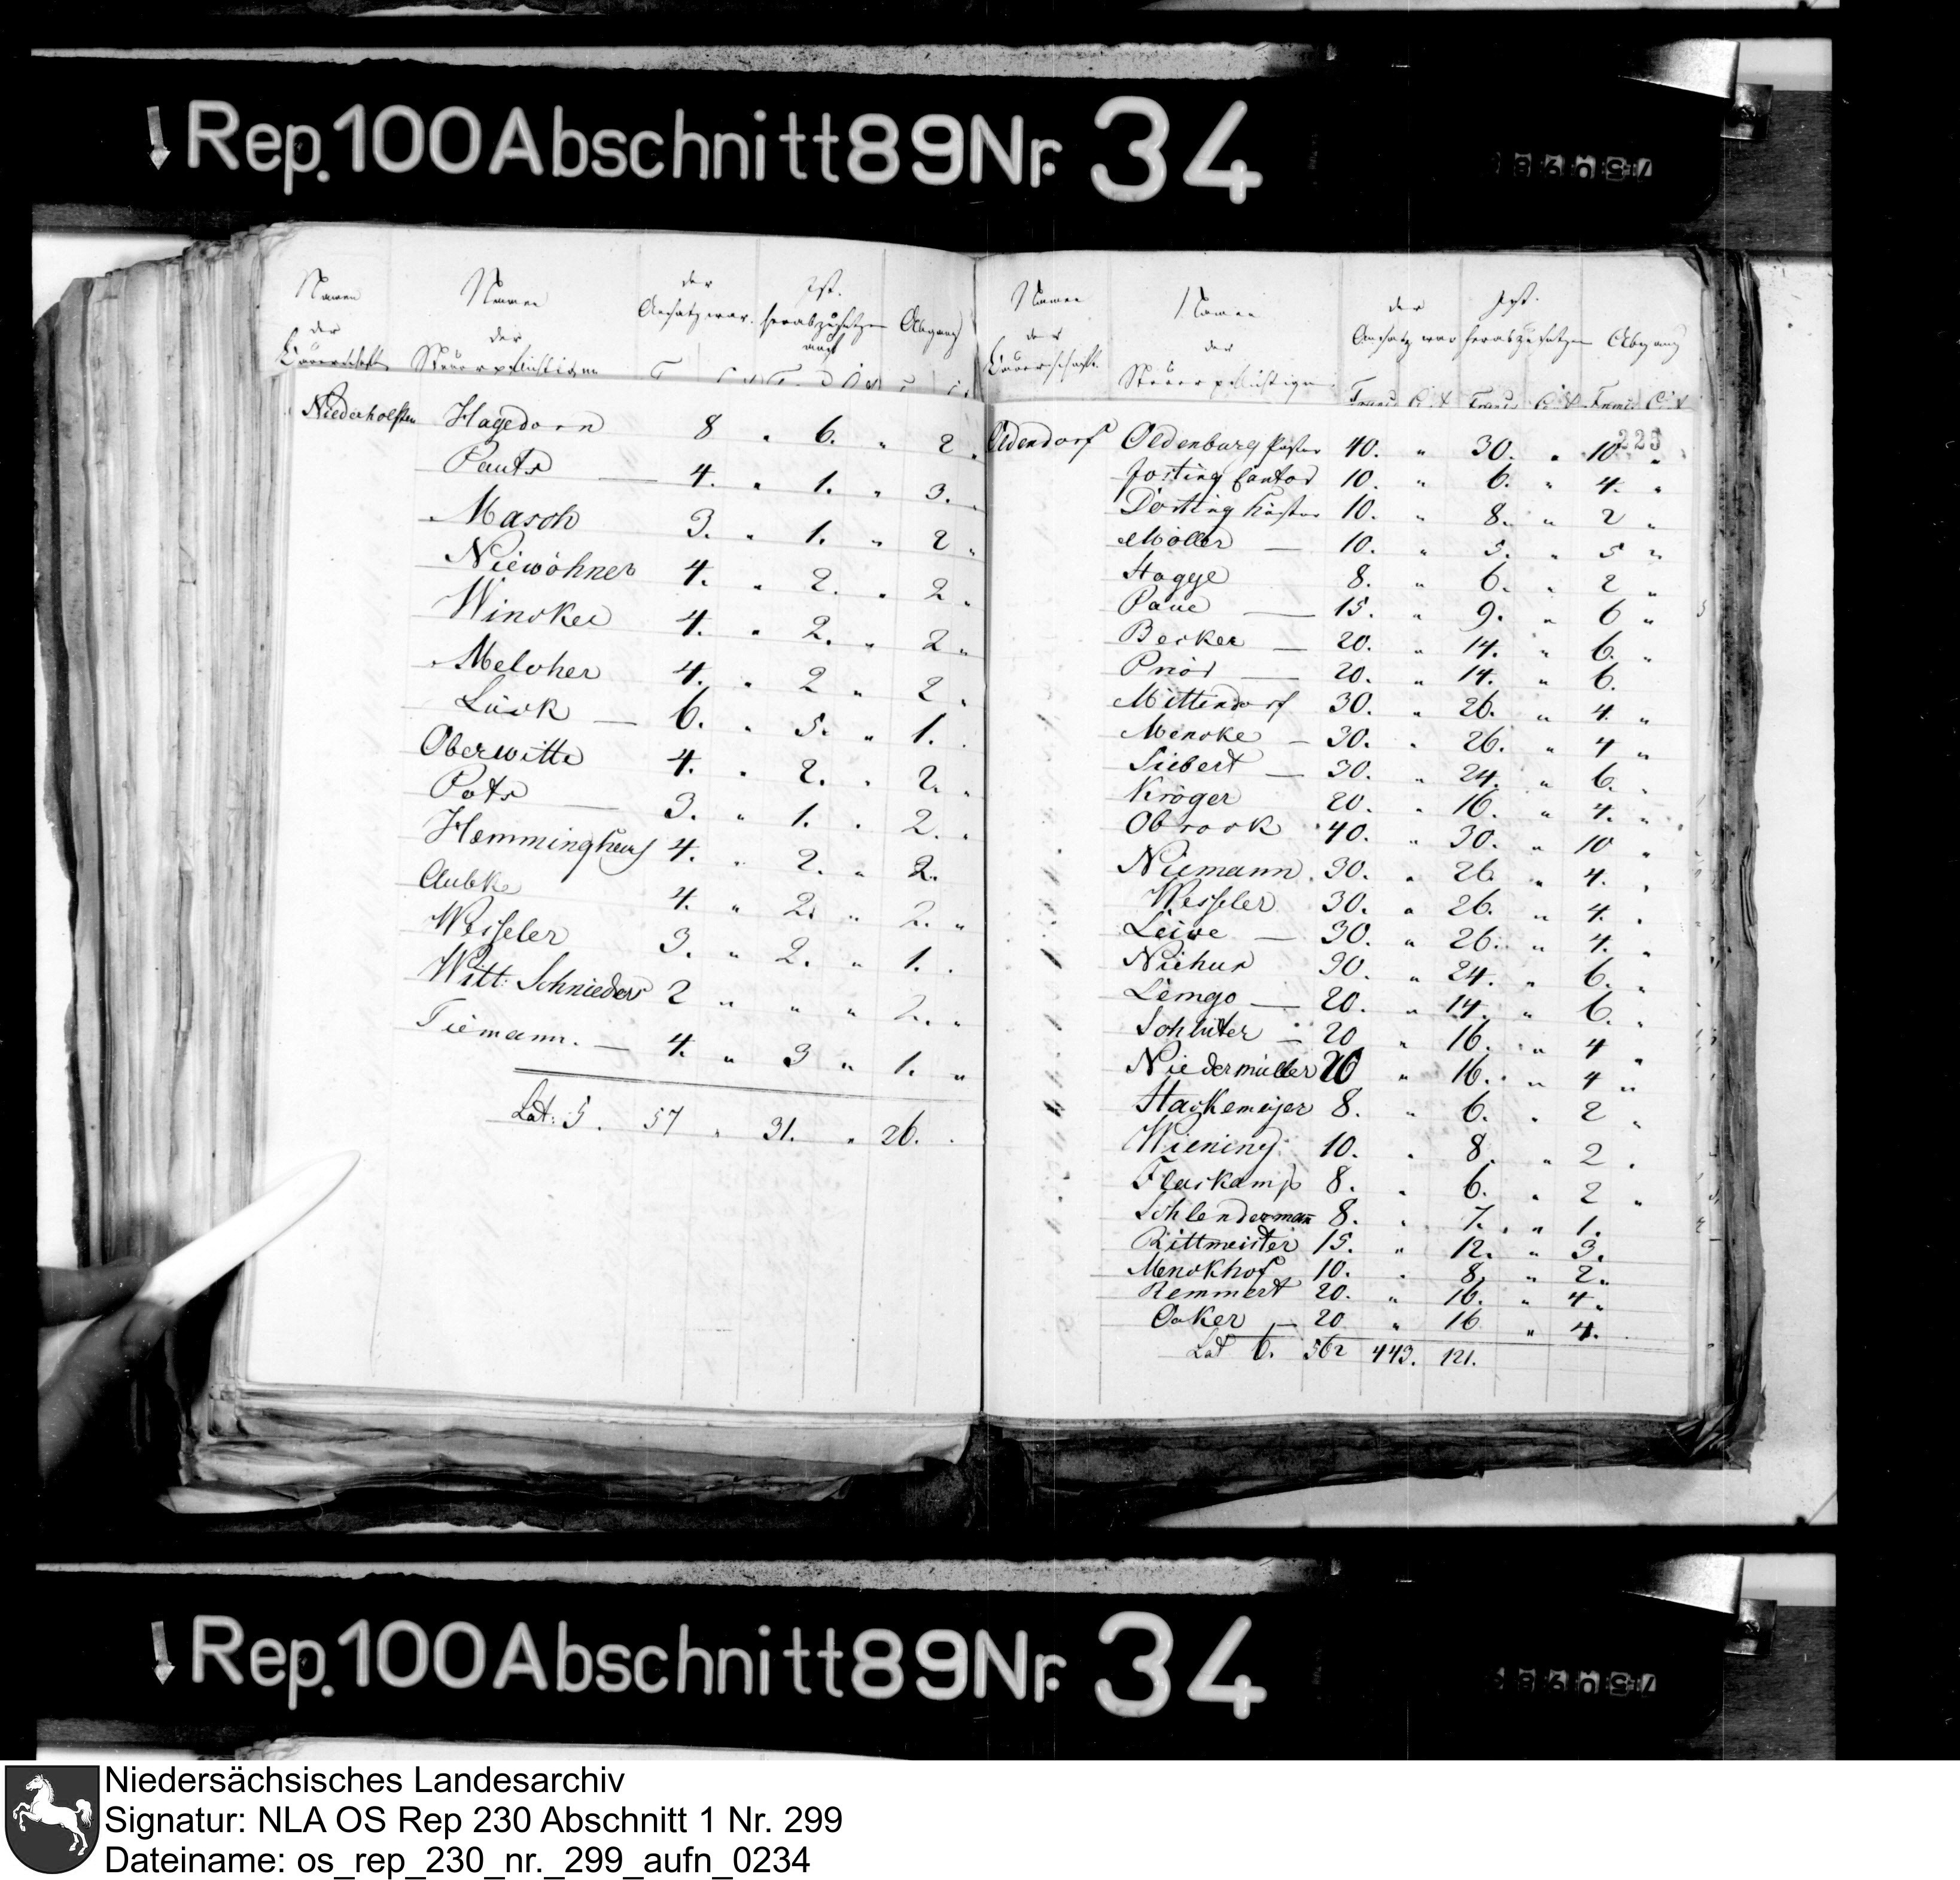 Rep. 100 Abschnitt 89 Nr. 34
Namen der Bauerschaft Namen der Steuerpflichtigen der Ansatz war Ist. herabzusetzen auf Abgang
Niederholsten Hagedorn 8 " 6. " 2 "
Pauts — 4. " 1. " 3. "
Masch 3. " 1. " 2 "
Niewöhner 4. " 2. " 2 "
Wincker 4. " 2. " 2 "
Melcher 4. " 2 " 2 "
Lück — 6. " 5. " 1. "
Oberwitte 4. " 2. " 2. "
Pots — 3. " 1. " 2. "
Hemminghaus 4. " 2. " 2.
Aubke 4. " 2. " 2. "
Wesseler 3. " 2. " 1. "
Witt: Schnieders 2 " " " 2. "
Tiemann. — 4. " 3 " 1. "
Lat: 5. 57 " 31. " 26. "
Namen der Bauerschaft. Namen der Steuerpflichtigen der Ansatz war Ist. herabzusetzen Abgang
Franc Ct Franc Ct Franc Ct
225
Oldendorf Oldenburg Pastor 40. " 30. " 10. "
Josting Cantor 10. " 6. " 4. "
Dorting Küster 10. " 8. " 2 "
Möller — 10. " 5. " 5 "
Hagge 8. " 6. " 2 "
Pane — 15. " 9. " 6 "
Becker — 20. " 14. " 6. "
Priör — 20. " 14. " 6.
Mittendorf 30. " 26. " 4. "
Mencke — 30. " 26. " 4 "
Siebert — 30. " 24. " 6. "
Kröger 20. " 16. " 4. "
Obrock 40. " 30. " 10 "
Niemann. 30. " 26. " 4. "
Wesseler 30. " 26. " 4. "
Leive — 30. " 26. " 4. "
Niehus 30. " 24. " 6. "
Lemgo — 20. " 14. " 6. "
Schlüter — 20 " 16. " 4 "
Niedermüller 20 " 16. " 4 "
Hackemeijer 8. " 6. " 2 "
Wiening 10. " 8. " 2. "
Flaskamp 8. " 6. " 2 "
Schlendermañ 8. " 7. " 1.
Rittmeister 15. " 12. " 3.
Menckhof 10. " 8. " 2. "
Remmert 20. " 16. " 4 "
Ocker — 20 " 16 " 4.
Lat 6. 562 443. 121.
Rep. 100 Abschnitt 89 Nr. 34
Niedersächsisches Landesarchiv
Signatur: NLA OS Rep 230 Abschnitt 1 Nr. 299
Dateiname: os_rep_230_nr._299_aufn_0234